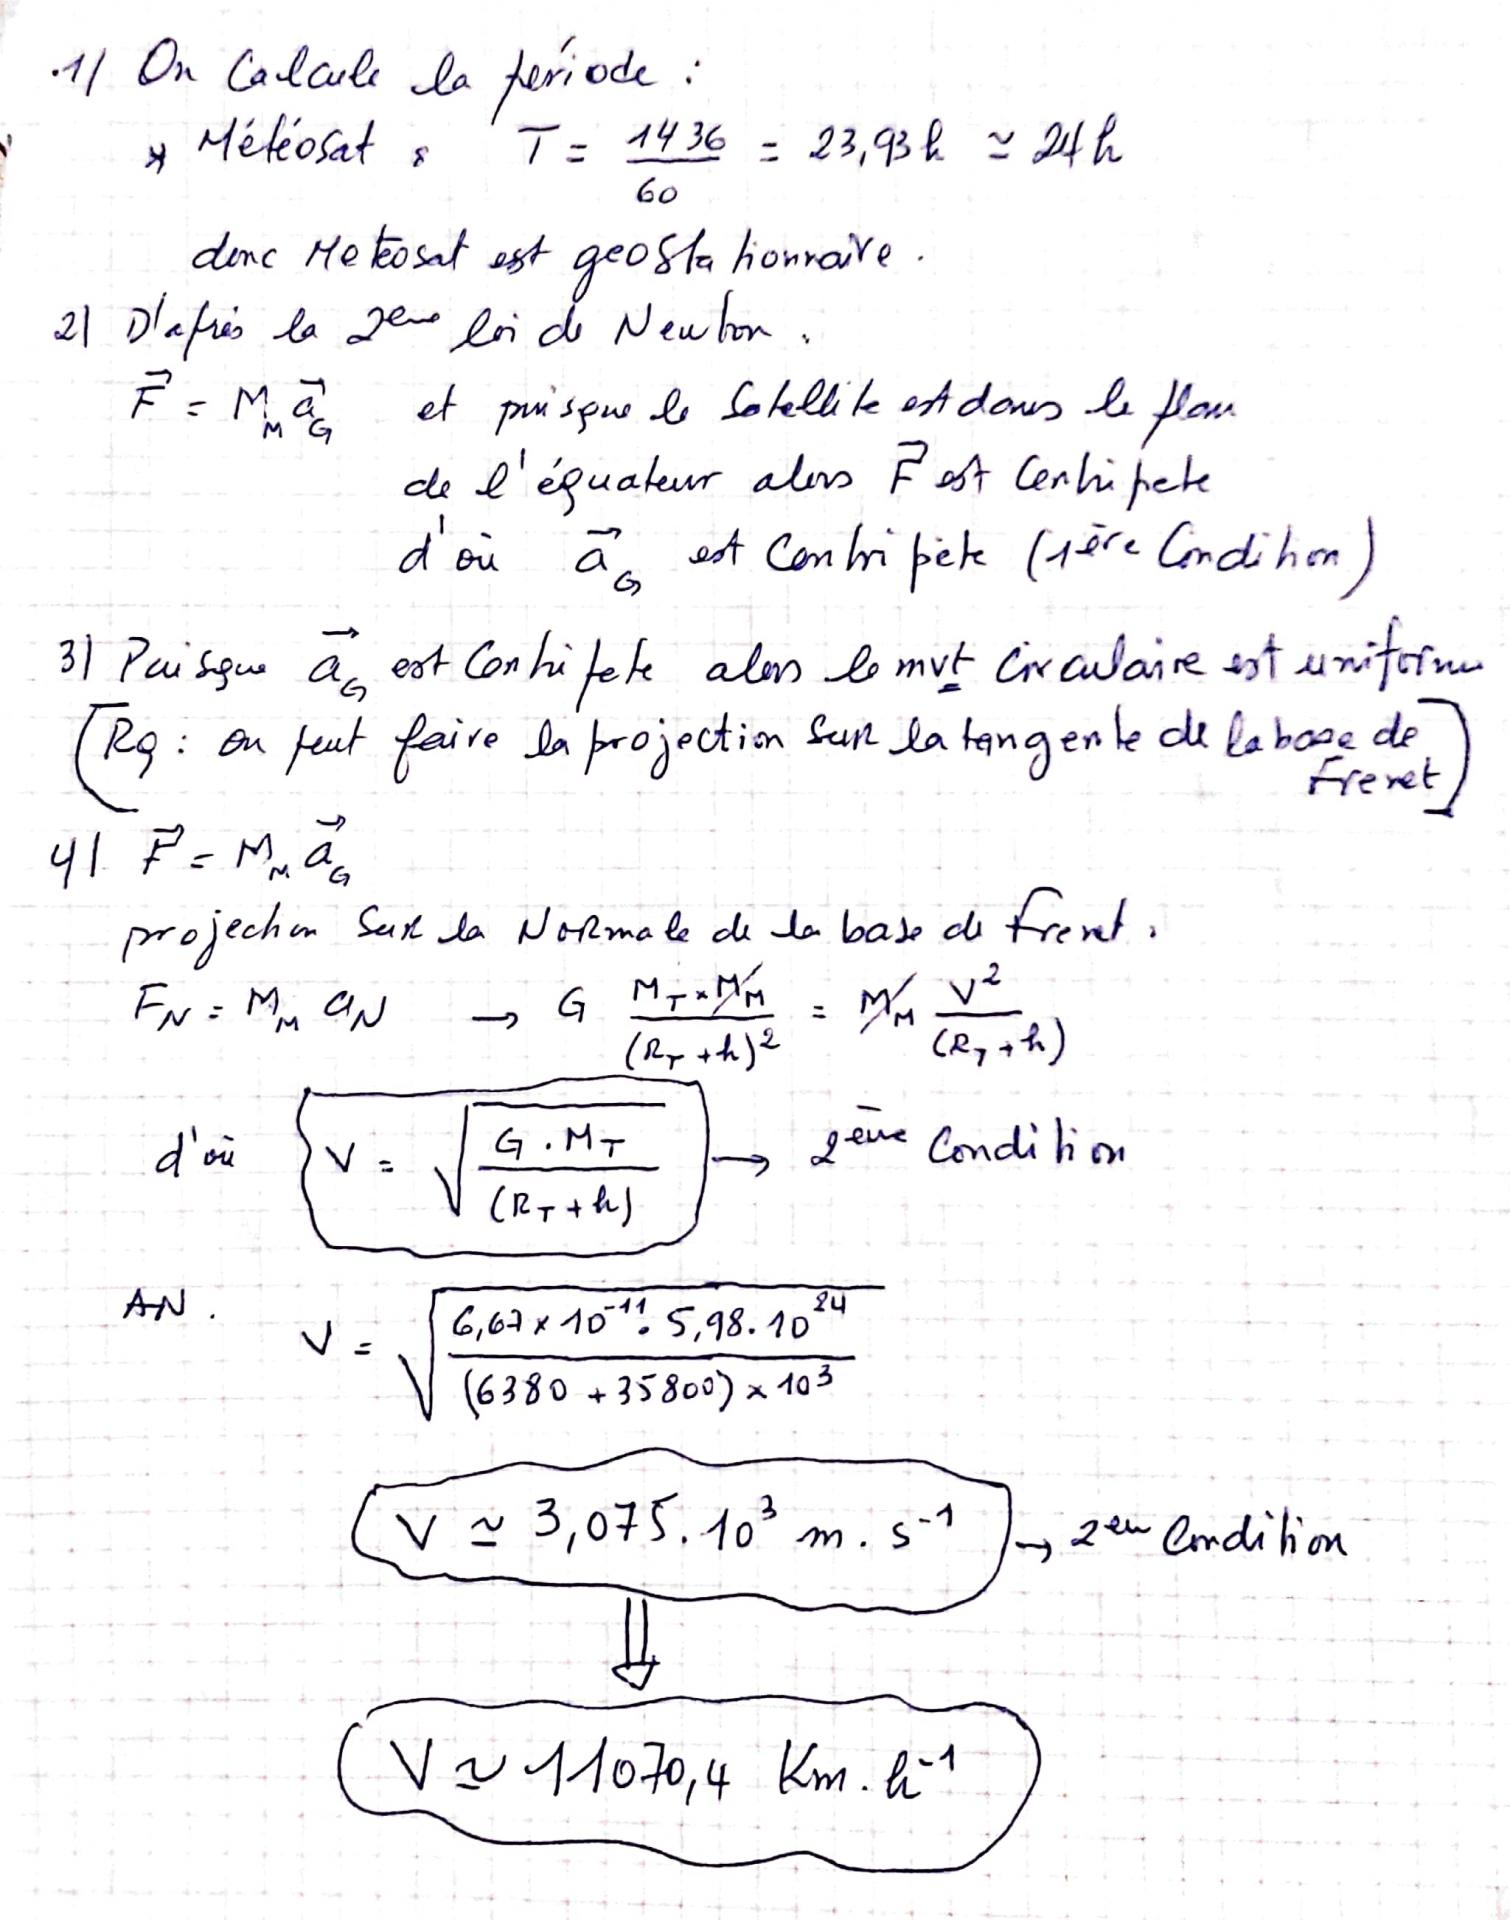 .1/ On Calcule la période :
* Météosat : T = 1436/60 = 23,93h ≃ 24h
donc Meteosat est geostationnaire.
2/ D'après la 2eme loi de Newton.
F⃗ = M_M a⃗_G et puisque le Satellite est dans le plan
de l'équateur alors F⃗ est Centripete
d'où a⃗_G est Centripète (1ère Condition)
3/ Puisque a⃗_G est Centripete alors le mvt Circulaire est uniforme
[Rq : on peut faire la projection sur la tangente de la base de
Frenet]
4/ F⃗ = M_M a⃗_G
projection sur la Normale de la base de Frenet.
F_N = M_M a_N → G (M_T × M_M)/(R_T + h)² = M_M V²/(R_T + h)
d'où V = √(G . M_T/(R_T + h)) → 2ème Condition
AN. V = √(6,67 × 10⁻¹¹ . 5,98 . 10²⁴/(6380 + 35800) × 10³)
V ≃ 3,075 . 10³ m . s⁻¹ → 2em Condition
⇓
V ≃ 11070,4 Km . h⁻¹